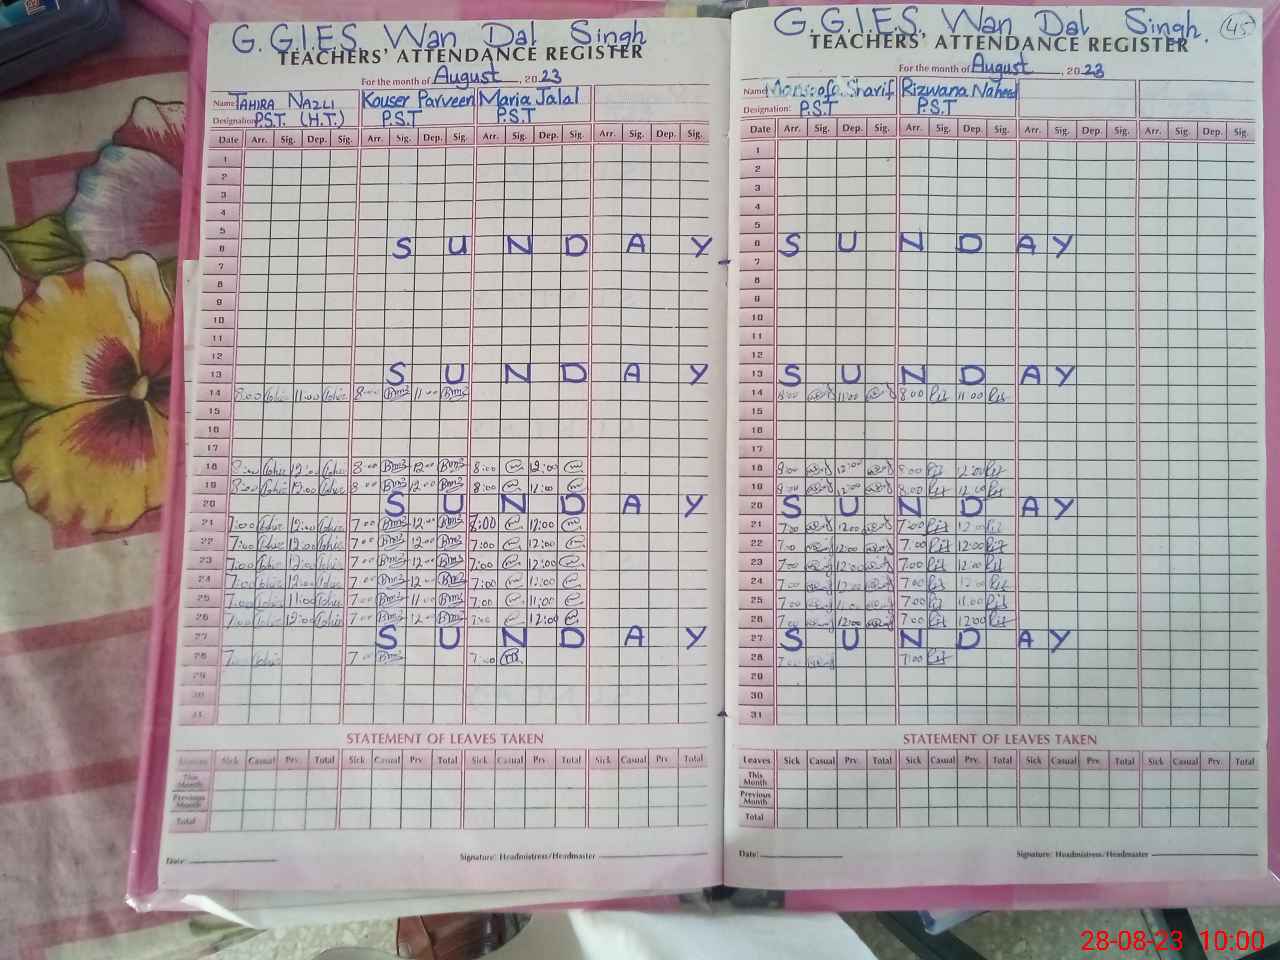 G.G.I.E.S Wan Dal Singh
TEACHERS' ATTENDANCE REGISTER
For the month of August, 2023
Name: TAHIRA NAZLI Kouser Parveen Maria Jalal
Designation: P.S.T (H.T.) P.S.T P.S.T
Date Arr. Sig. Dep. Sig. Arr. Sig. Dep. Sig. Arr. Sig. Dep. Sig. Arr. Sig. Dep. Sig.
1
2
3
4
5
6 S U N D A Y
7
8
9
10
11
12
13 S U N D A Y
14 8:00 11:00 8:00 11:00
15
16
17
18 8:00 12:00 8:00 12:00 8:00 12:00
19 8:00 12:00 8:00 12:00 8:00 12:00
20 S U N D A Y
21 7:00 12:00 7:00 12:00 8:00 12:00
22 7:00 12:00 7:00 12:00 7:00 12:00
23 7:00 12:00 7:00 12:00 7:00 12:00
24 7:00 12:00 7:00 12:00 7:00 12:00
25 7:00 11:00 7:00 11:00 7:00 11:00
26 7:00 12:00 7:00 12:00 7:00 12:00
27 S U N D A Y
28 7:00 7:00 7:00
29
30
31
STATEMENT OF LEAVES TAKEN
Leaves Sick Casual Prv. Total Sick Casual Prv. Total Sick Casual Prv. Total Sick Casual Prv. Total
This Month
Previous Month
Total
Date: Signature: Headmistress/Headmaster
G.G.I.E.S. Wan Dal Singh. 45
TEACHERS' ATTENDANCE REGISTER
For the month of August, 2023
Name: Sharif Rizwana Naheed
Designation: P.S.T P.S.T
Date Arr. Sig. Dep. Sig. Arr. Sig. Dep. Sig. Arr. Sig. Dep. Sig. Arr. Sig. Dep. Sig.
1
2
3
4
5
6 S U N D A Y
7
8
9
10
11
12
13 S U N D A Y
14 8:00 11:00 8:00 11:00
15
16
17
18 8:00 12:00 8:00 12:00
19 8:00 12:00 8:00 12:00
20 S U N D A Y
21 7:00 12:00 7:00 12:00
22 7:00 12:00 7:00 12:00
23 7:00 12:00 7:00 12:00
24 7:00 12:00 7:00 12:00
25 7:00 11:00 7:00 11:00
26 7:00 12:00 7:00 12:00
27 S U N D A Y
28 7:00 7:00
29
30
31
STATEMENT OF LEAVES TAKEN
Leaves Sick Casual Prv. Total Sick Casual Prv. Total Sick Casual Prv. Total Sick Casual Prv. Total
This Month
Previous Month
Total
Date: Signature: Headmistress/Headmaster
28-08-23 10:00